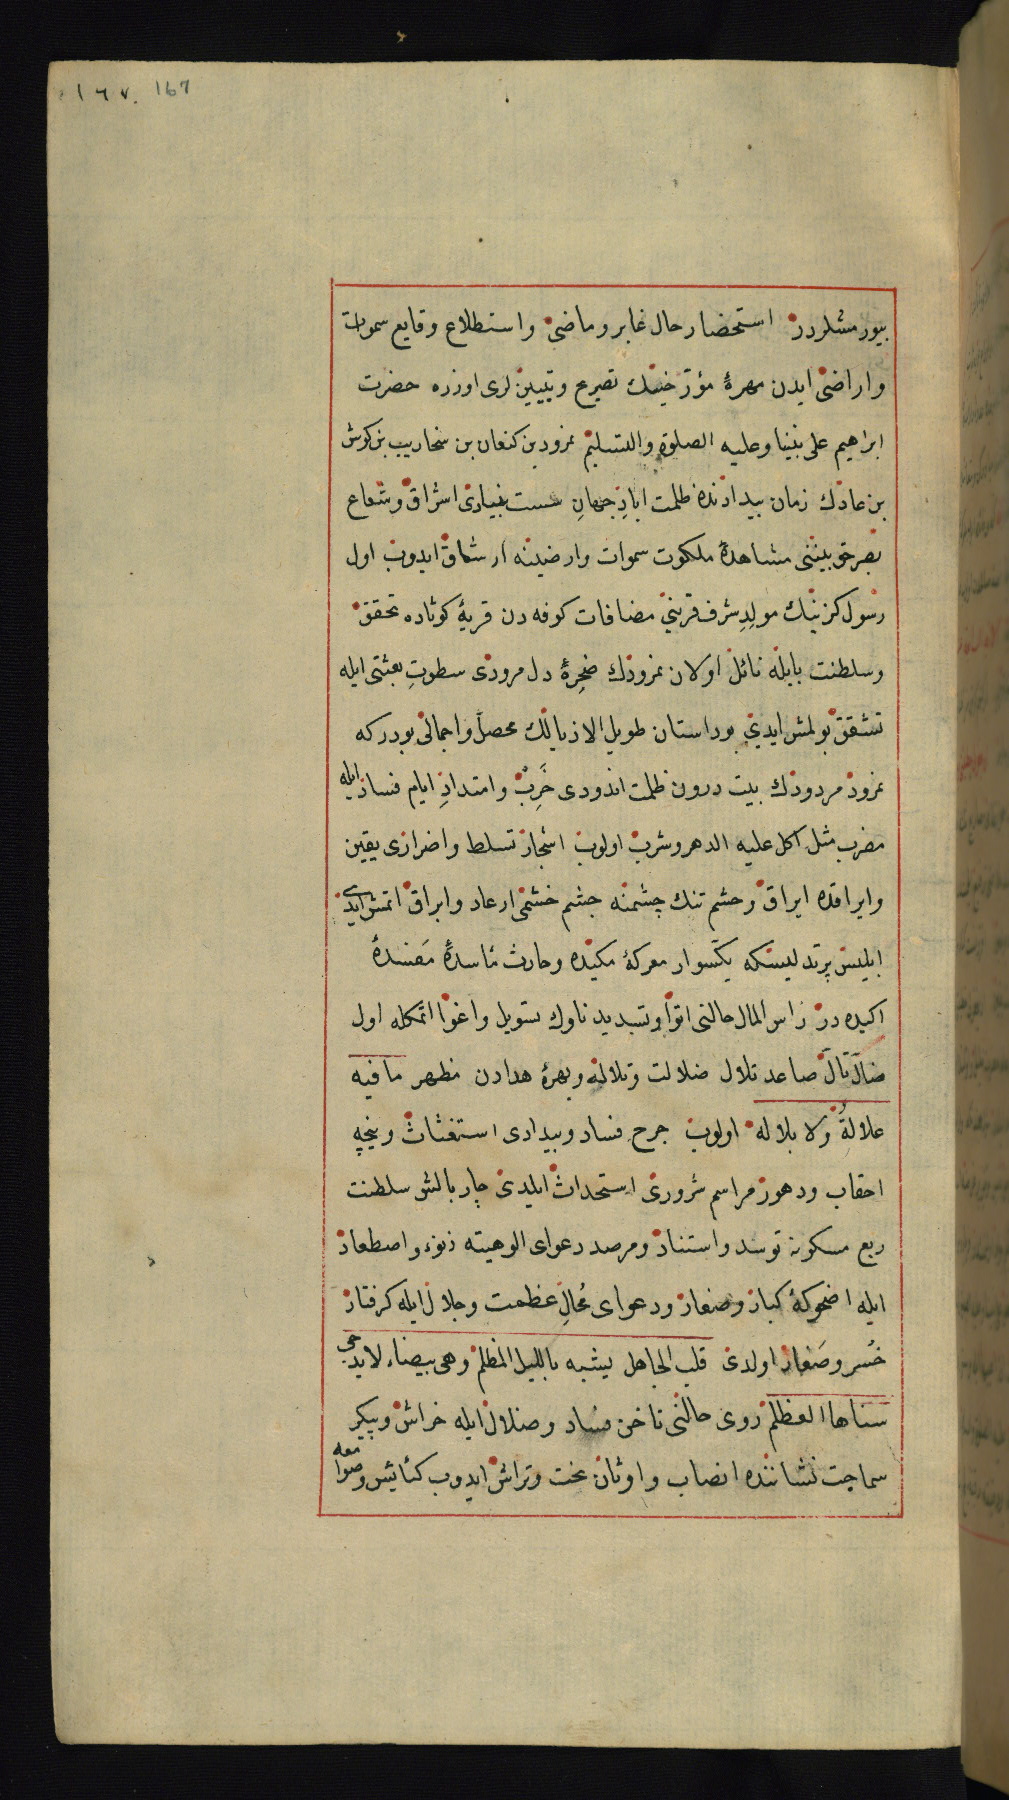 167 ١٦٧
بيورمشلردر استحضار حال غابر وماضى واستطلاع وقايع سموات
واراضى ايدن مهرهٔ مؤرخينك تصريح وتبيين لرى اوزره حضرت
ابراهيم على نبينا وعليه الصلوة والتسليم نمرود بن كنعان بن سنحاريب بن كوش
بن عادك زمان بيدادنده ظلمت اباد جهان سست بنيادى اشراق وشعاع
بصر حق بيننى مشاهدهٔ ملكوت سموات وارضينه ارشاق ايدوب اول
رسول كزينك مولد شرف قرينى مضافات كوفه دن قريهٔ كوثاده تحقق
وسلطنت بابله نائل اولان نمرودك ضجرهٔ دل مرودى سطوت بعثتى ايله
تشقق بولمش ايدى بو داستان طويل الاذيالك محصل واجمالى بودركه
نمرود مردودك بيت درون ظلمت اندودى خرب وامتداد ايام فساد ايله
مضرب مثل اكل عليه الدهر وشرب اولوب اشجار تسلط واضرارى يقين
وايراقده ايراق وحشم تنك چشمنه چشم خشمى ارعاد وابراق اتمش ايدى
ابليس پرتلبيسكه يكسوار معركهٔ مكيده وحارث مأسدهٔ مفسدهٔ
اكيده در رأس المال حالنى اتوا وتسديد ناوك تسويل واغوا اتمكله اول
ضال تال صاعد تلال ضلالت وتلاله وبهرهٔ هدادن مظهر ما فيه
علالة ولا بلاله اولوب جرح فساد وبيدادى استغثاث ونيجه
احقاب ودهور مراسم شرورى استحداث ايلدى چار بالش سلطنت
ربع مسكونه توسد واستناد ومرصد دعواى الوهيته ذنوء واصطعاد
ايله اضحوكهٔ كبار وصغار ودعواى محال عظمت وجلال ايله كرفتار
خسر وصغار اولدى قلب الجاهل يشبه بالليل المظلم وهى بيضاء لا يدجى
سناها العظلم روى حالنى ناخن فساد وضلال ايله خراش وپيكر
سماجت نشاننده انصاب واوثان نحت وتراش ايدوب كنايش وصوامعه